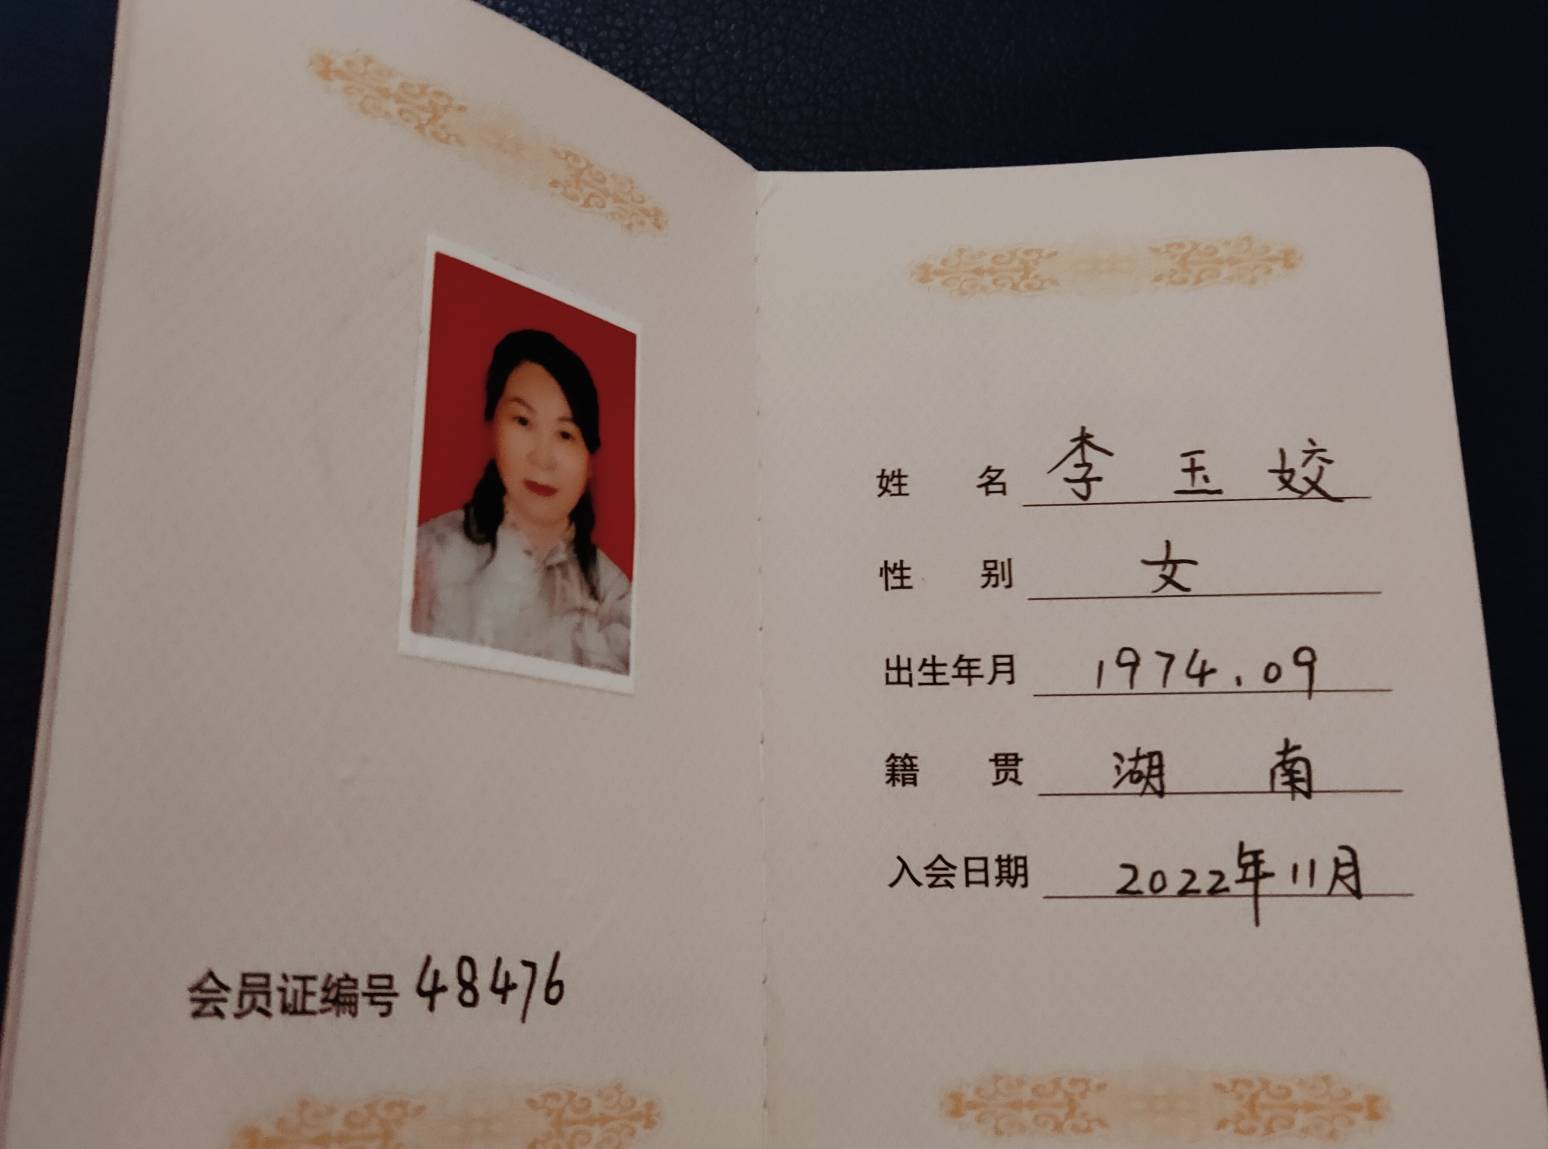 会员证编号 48476
姓 名 李玉姣
性 别 女
出生年月 1974.09
籍 贯 湖南
入会日期 2022年11月